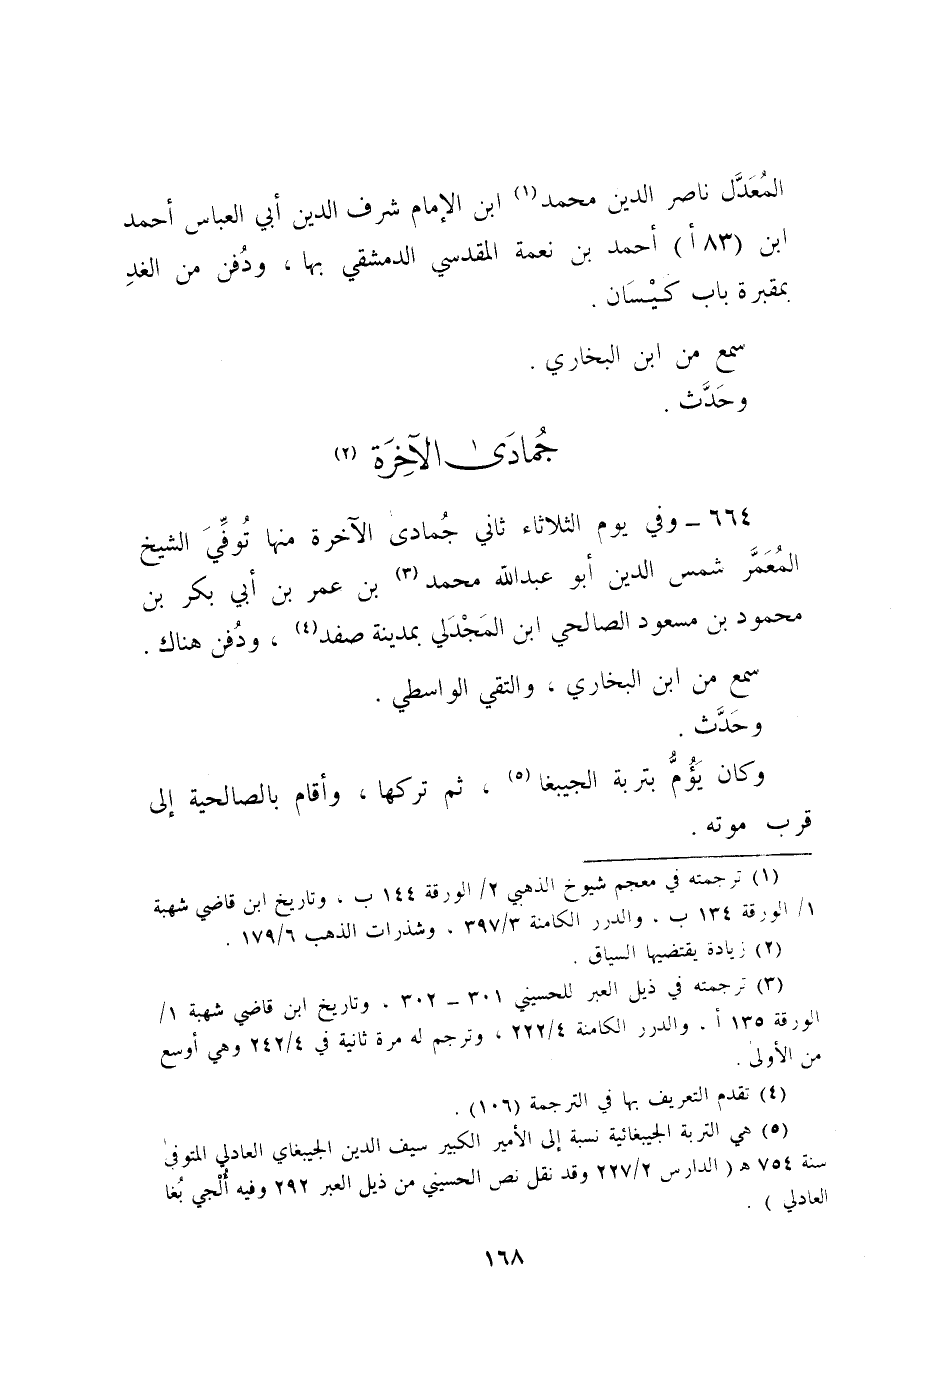 المُعَدَّل ناصر الدين محمد(١) ابن الإمام شرف الدين أبي العباس أحمد
ابن (٨٣ أ) أحمد بن نعمة المقدسي الدمشقي بها ، ودُفن من الغدِ
بمقبرة باب كَيْسَان .
سمع من ابن البخاري .
وحَدَّث .
جُمادَىٰ الآخِرَة (٢)
٦٦٤ - وفي يوم الثلاثاء ثاني جُمادىٰ الآخرة منها تُوفِّيَ الشيخ
المُعَمَّر شمس الدين أبو عبدالله محمد(٣) بن عمر بن أبي بكر بن
محمود بن مسعود الصالحي ابن المَجْدَلي بمدينة صفد(٤) ، ودُفن هناك .
سمع من ابن البخاري ، والتقي الواسطي .
وحَدَّث .
وكان يَؤُمُّ بتربة الجيبغا(٥) ، ثم تركها ، وأقام بالصالحية إلى
قرب موته .
(١) ترجمته في معجم شيوخ الذهبي ٢/ الورقة ١٤٤ ب ، وتاريخ ابن قاضي شهبة
١/ الورقة ١٣٤ ب . والدرر الكامنة ٣٩٧/٣ . وشذرات الذهب ١٧٩/٦ .
(٢) زيادة يقتضيها السياق .
(٣) ترجمته في ذيل العبر للحسيني ٣٠١ - ٣٠٢ . وتاريخ ابن قاضي شهبة ١/
الورقة ١٣٥ أ . والدرر الكامنة ٢٢٢/٤ ، وترجم له مرة ثانية في ٢٤٢/٤ وهي أوسع
من الأولىٰ .
(٤) تقدم التعريف بها في الترجمة (١٠٦) .
(٥) هي التربة الجيبغائية نسبة إلى الأمير الكبير سيف الدين الجيبغاي العادلي المتوفىٰ
سنة ٧٥٤ هـ ( الدارس ٢٢٧/٢ وقد نقل نص الحسيني من ذيل العبر ٢٩٢ وفيه أُلْجي بُغا
العادلي ) .
١٦٨